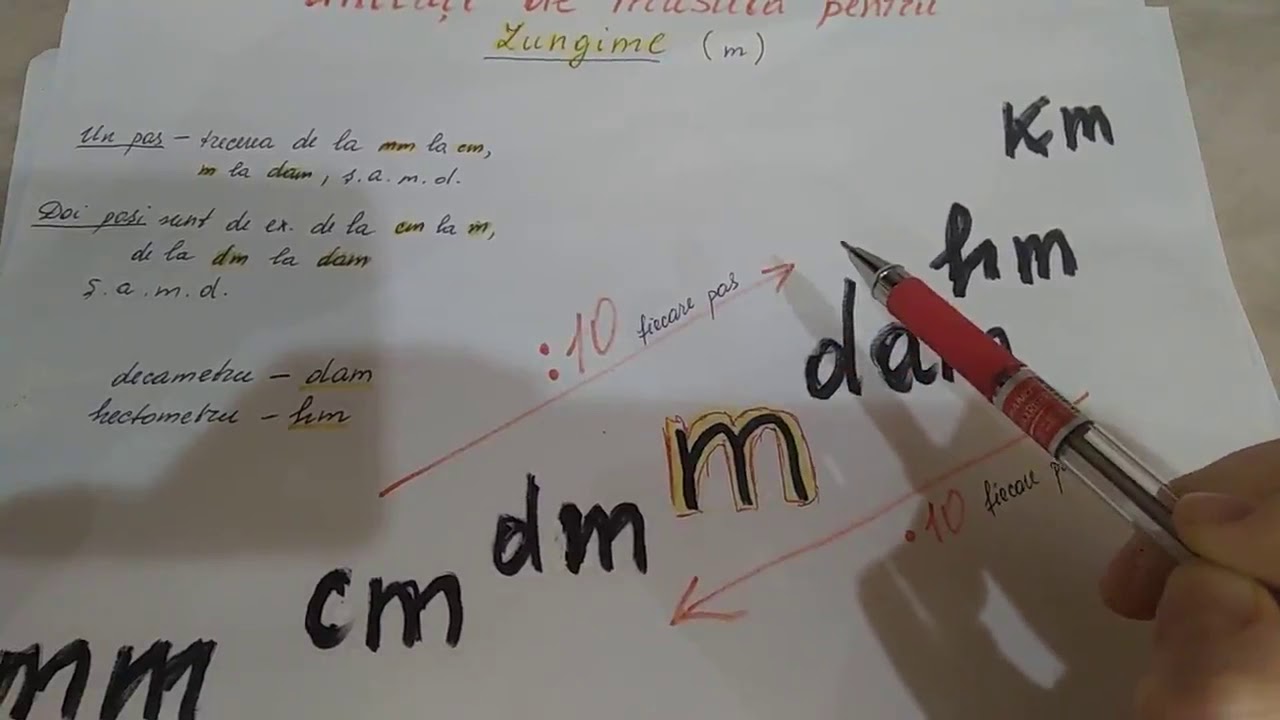 unități de măsură pentru
Lungime (m)
Un pas – trecerea de la mm la cm,
m la dam, ș.a.m.d.
Doi pași sunt de ex. de la cm la m,
de la dm la dam
ș.a.m.d.
decametru – dam
hectometru – hm
:10 fiecare pas
km
hm
dam
m
dm
cm
mm
·10 fiecare